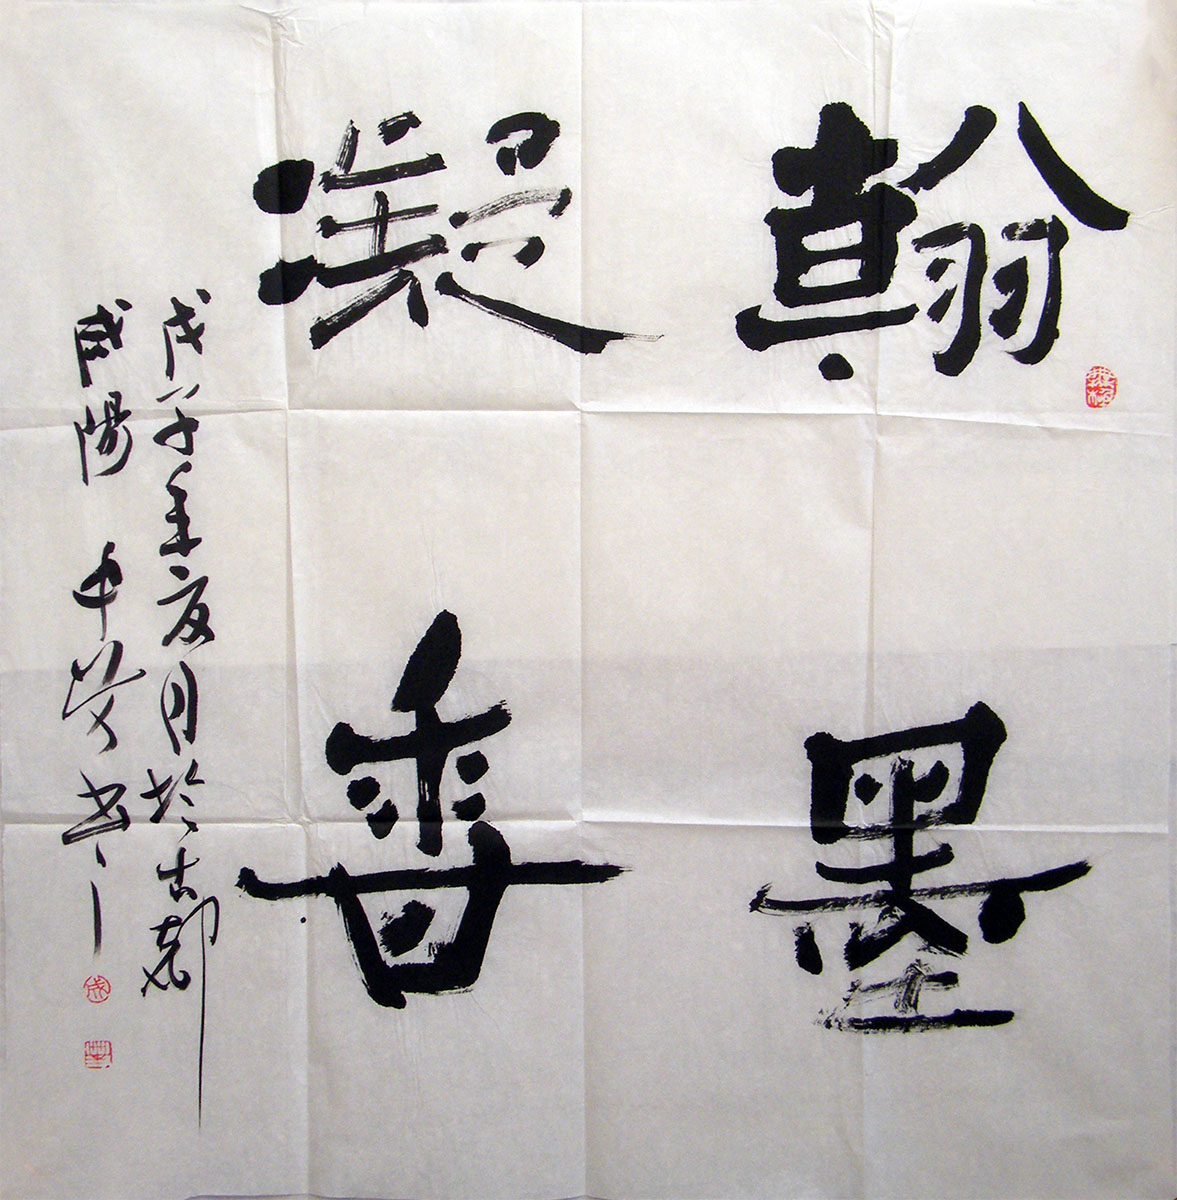 翰墨
凝香
戊子年夏月於古都
咸陽 中 書